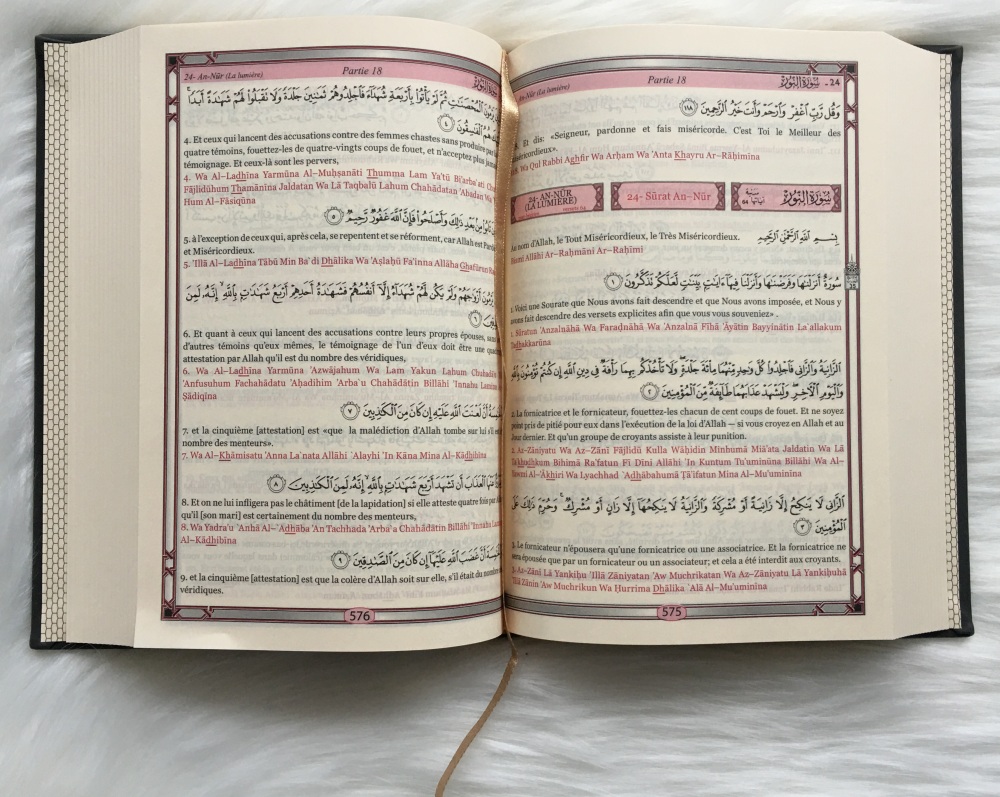 An-Nūr (La lumière) Partie 18 24 - سُورَةُ النُّورِ
وَقُل رَّبِّ اغْفِرْ وَارْحَمْ وَأَنتَ خَيْرُ الرَّاحِمِينَ ١١٨
Et dis: «Seigneur, pardonne et fais miséricorde. C'est Toi le Meilleur des
miséricordieux».
Wa Qul Rabbi Aghfir Wa Arḥam Wa 'Anta Khayru Ar-Rāḥimīna
24- AN-NŪR 24- Sūrat An-Nūr سُورَةُ النُّورِ
(LA LUMIÈRE)
nom d'Allah, le Tout Miséricordieux, le Très Miséricordieux. بِسْمِ اللَّهِ الرَّحْمَٰنِ الرَّحِيمِ
Bismi Allāhi Ar-Raḥmāni Ar-Raḥīmi
سُورَةٌ أَنزَلْنَاهَا وَفَرَضْنَاهَا وَأَنزَلْنَا فِيهَا ءَايَاتٍ بَيِّنَاتٍ لَّعَلَّكُمْ تَذَكَّرُونَ ١
1. Voici une Sourate que Nous avons fait descendre et que Nous avons imposée, et Nous y
avons fait descendre des versets explicites afin que vous vous souveniez» .
1. Sūratun 'Anzalnāhā Wa Faraḍnāhā Wa 'Anzalnā Fīhā 'Āyātin Bayyinātin La`allakum
Tadhakkarūna
الزَّانِيَةُ وَالزَّانِي فَاجْلِدُوا كُلَّ وَاحِدٍ مِّنْهُمَا مِائَةَ جَلْدَةٍ وَلَا تَأْخُذْكُم بِهِمَا رَأْفَةٌ فِي دِينِ اللَّهِ إِن كُنتُمْ تُؤْمِنُونَ بِاللَّهِ
وَالْيَوْمِ الْآخِرِ وَلْيَشْهَدْ عَذَابَهُمَا طَائِفَةٌ مِّنَ الْمُؤْمِنِينَ ٢
2. La fornicatrice et le fornicateur, fouettez-les chacun de cent coups de fouet. Et ne soyez
point pris de pitié pour eux dans l'exécution de la loi d'Allah – si vous croyez en Allah et au
Jour dernier. Et qu'un groupe de croyants assiste à leur punition.
2. Az-Zāniyatu Wa Az-Zānī Fājlidū Kulla Wāḥidin Minhumā Miā'ata Jaldatin Wa Lā
Ta'khudhkum Bihimā Ra'fatun Fī Dīni Allāhi 'In Kuntum Tu'uminūna Billāhi Wa Al-
Yawmi Al-'Ākhiri Wa Lyachhad `Adhābahumā Ṭā'ifatun Mina Al-Mu'uminīna
الزَّانِي لَا يَنكِحُ إِلَّا زَانِيَةً أَوْ مُشْرِكَةً وَالزَّانِيَةُ لَا يَنكِحُهَا إِلَّا زَانٍ أَوْ مُشْرِكٌ وَحُرِّمَ ذَٰلِكَ عَلَى
الْمُؤْمِنِينَ ٣
3. Le fornicateur n'épousera qu'une fornicatrice ou une associatrice. Et la fornicatrice ne
sera épousée que par un fornicateur ou un associateur; et cela a été interdit aux croyants.
3. Az-Zānī Lā Yankiḥu 'Illā Zāniyatan 'Aw Muchrikatan Wa Az-Zāniyatu Lā Yankiḥuhā
'Illā Zānin 'Aw Muchrikun Wa Ḥurrima Dhālika `Alá Al-Mu'uminīna
575
24- An-Nūr (La lumière) Partie 18
يَرْمُونَ الْمُحْصَنَاتِ ثُمَّ لَمْ يَأْتُوا بِأَرْبَعَةِ شُهَدَاءَ فَاجْلِدُوهُمْ ثَمَانِينَ جَلْدَةً وَلَا تَقْبَلُوا لَهُمْ شَهَادَةً أَبَدًا
هُمُ الْفَاسِقُونَ ٤
4. Et ceux qui lancent des accusations contre des femmes chastes sans produire par
quatre témoins, fouettez-les de quatre-vingts coups de fouet, et n'acceptez plus jamais
témoignage. Et ceux-là sont les pervers,
4. Wa Al-Ladhīna Yarmūna Al-Muḥṣanāti Thumma Lam Ya'tū Bi'arba`ati
Fājlidūhum Thamānīna Jaldatan Wa Lā Taqbalū Lahum Chahādatan 'Abadan
Hum Al-Fāsiqūna
تَابُوا مِن بَعْدِ ذَٰلِكَ وَأَصْلَحُوا فَإِنَّ اللَّهَ غَفُورٌ رَّحِيمٌ ٥
5. à l'exception de ceux qui, après cela, se repentent et se réforment, car Allah est
et Miséricordieux.
5. 'Illā Al-Ladhīna Tābū Min Ba`di Dhālika Wa 'Aṣlaḥū Fa'inna Allāha Ghafūrun
يَرْمُونَ أَزْوَاجَهُمْ وَلَمْ يَكُن لَّهُمْ شُهَدَاءُ إِلَّا أَنفُسُهُمْ فَشَهَادَةُ أَحَدِهِمْ أَرْبَعُ شَهَادَاتٍ بِاللَّهِ إِنَّهُ لَمِنَ
٦
6. Et quant à ceux qui lancent des accusations contre leurs propres épouses,
d'autres témoins qu'eux mêmes, le témoignage de l'un d'eux doit être une
attestation par Allah qu'il est du nombre des véridiques,
6. Wa Al-Ladhīna Yarmūna 'Azwājahum Wa Lam Yakun Lahum
'Anfusuhum Fachahādatu 'Aḥadihim 'Arba`u Chahādātin Billāhi 'Innahu
Ṣādiqīna
أَنَّ لَعْنَتَ اللَّهِ عَلَيْهِ إِن كَانَ مِنَ الْكَاذِبِينَ ٧
7. et la cinquième [attestation] est «que la malédiction d'Allah tombe sur lui
nombre des menteurs».
7. Wa Al-Khāmisatu 'Anna La`nata Allāhi `Alayhi 'In Kāna Mina Al-Kādhibīna
الْعَذَابَ أَن تَشْهَدَ أَرْبَعَ شَهَادَاتٍ بِاللَّهِ إِنَّهُ لَمِنَ الْكَاذِبِينَ ٨
8. Et on ne lui infligera pas le châtiment [de la lapidation] si elle atteste quatre fois
qu'il [son mari] est certainement du nombre des menteurs,
8. Wa Yadra'u `Anhā Al-`Adhāba 'An Tachhada 'Arba`a Chahādātin Billāhi 'Innahu
Al-Kādhibīna
أَنَّ غَضَبَ اللَّهِ عَلَيْهَا إِن كَانَ مِنَ الصَّادِقِينَ ٩
9. et la cinquième [attestation] est que la colère d'Allah soit sur elle, s'il était du nombre
véridiques.
576